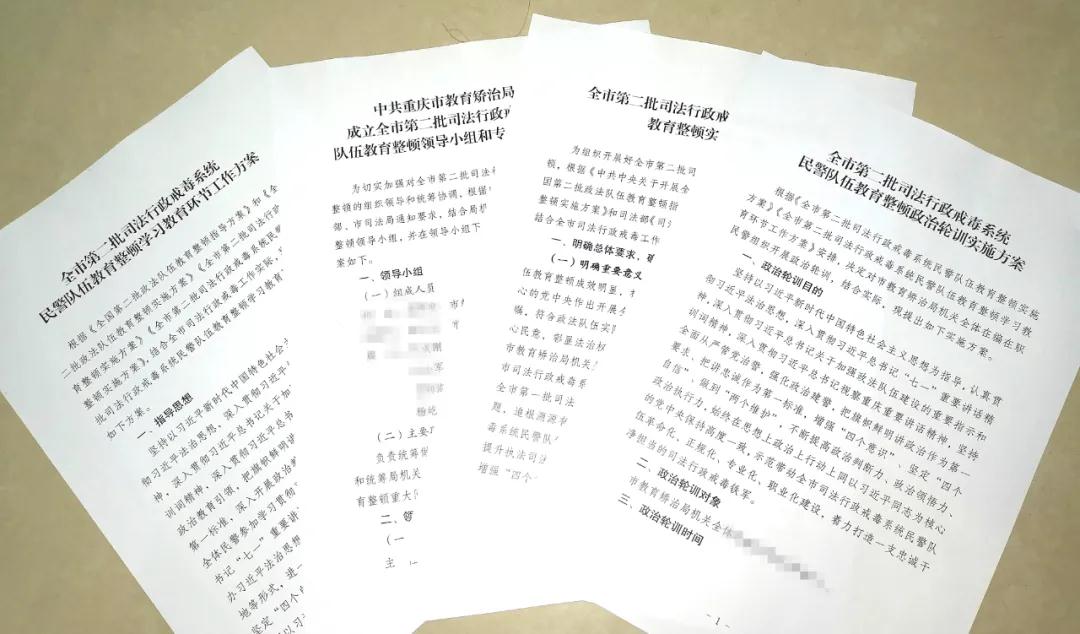 全市第二批司法行政戒毒系统
民警队伍教育整顿学习教育环节工作方案
根据《全国第二批政法队伍教育整顿指导方案》和《全
二批政法队伍教育整顿实施方案》《全市第二批司法行政
育整顿实施方案》,结合全市司法行政戒毒工作实际,
批司法行政戒毒系统民警队伍教育整顿学习教育
如下方案。
一、指导思想
坚持以习近平新时代中国特色社会主
彻习近平法治思想,深入贯彻习近平
神,深入贯彻习近平总书记关于加
训词精神,深入贯彻习近平总书
政治教育引领,把旗帜鲜明讲
第一标准,深入开展政治
全体民警参加学习贯彻
书记“七一”重要讲
办习近平法治思想
地等形式,进一
坚定“四个
中共重庆市教育矫治局
成立全市第二批司法行政戒
队伍教育整顿领导小组和专
为切实加强对全市第二批司法行
整顿的组织领导和统筹协调,根据
部、市司法局通知要求,结合局机
整顿领导小组,并在领导小组下
案如下。
一、领导小组
(一)组成人员
(二)主要
负责统筹
和统筹局机关
育整顿重大
二、领
(一
主
全市第二批司法行政戒
教育整顿实
为组织开展好全市第二批司
顿,根据《中共中央关于开展全
国第二批政法队伍教育整顿指
整顿实施方案》和司法部《司
结合全市司法行政戒毒工作
一、明确总体要求,
(一)明确重要意义
伍教育整顿成效明显,
心的党中央作出开展
嘱,符合政法队伍实
心民意,彰显法治权
市教育矫治局机关
市司法行政戒毒系
全市第一批司法
题,追根溯源
毒系统民警队
提升执法司法
增强“四个
全市第二批司法行政戒毒系统
民警队伍教育整顿政治轮训实施方案
根据《全市第二批司法行政戒毒系统民警队伍教育整顿实施
方案》《全市第二批司法行政戒毒系统民警队伍教育整顿学习教
育环节工作方案》安排,决定对市教育矫治局机关全体在编在职
民警组织开展政治轮训,结合实际,现提出如下实施方案。
一、政治轮训目的
坚持以习近平新时代中国特色社会主义思想为指导,认真贯
彻习近平法治思想,深入贯彻习近平总书记“七一”重要讲话精
神,深入贯彻习近平总书记关于加强政法队伍建设的重要指示和
训词精神,深入贯彻习近平总书记视察重庆重要讲话精神,坚持
全面从严管党治警,强化政治建警,把旗帜鲜明讲政治作为第一
要求、把讲忠诚作为第一标准,增强“四个意识”、坚定“四个
自信”、做到“两个维护”,不断提高政治判断力、政治领悟力、
政治执行力,始终在思想上政治上行动上同以习近平同志为核心
的党中央保持高度一致,示范带动全市司法行政戒毒系统民警队
伍革命化、正规化、专业化、职业化建设,着力打造一支忠诚干
净担当的司法行政戒毒铁军。
二、政治轮训对象
市教育矫治局机关全体
三、政治轮训时间
- 1 -